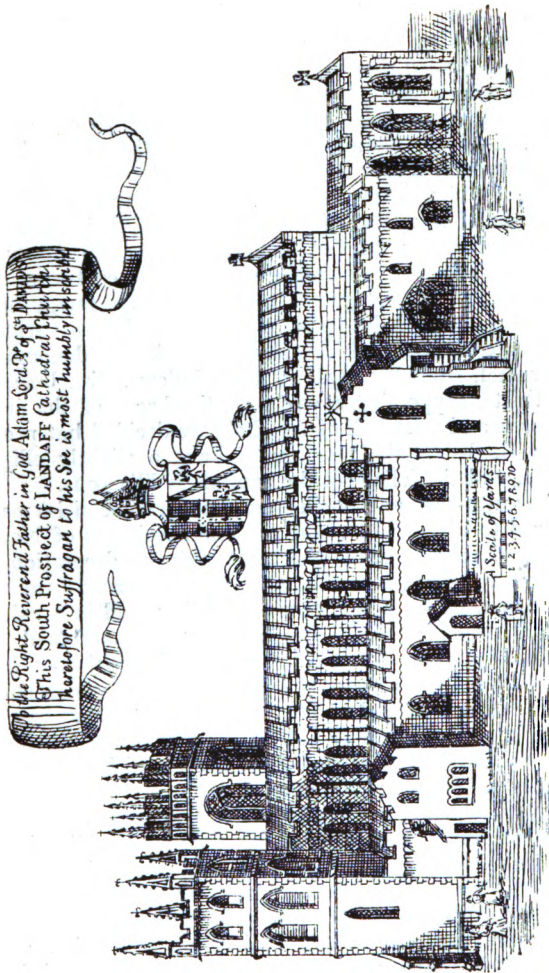 the Right Reverend Father in God Adam Lord Bp of St. Davids
This South Prospect of LANDAFF Cathedral Church
heretofore Suffragan to his See is most humbly inscrib'd
A Scale of Yards
1 2 3 4 5 6 7 8 9 10